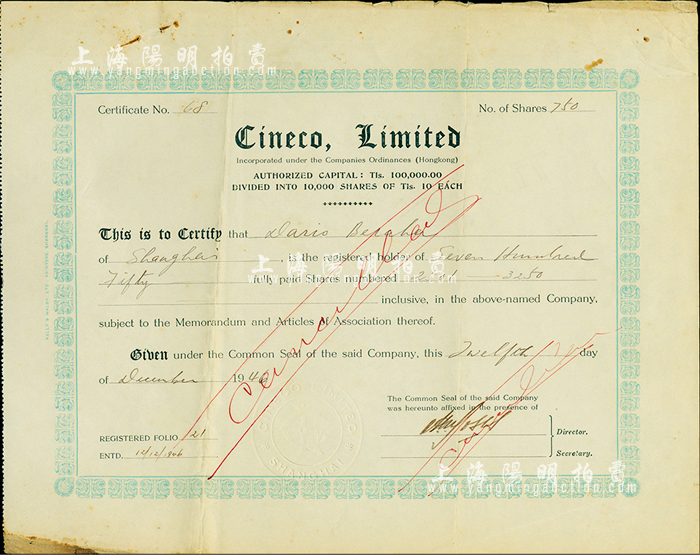 上海陽明拍賣
www.yangmingauction.com
Certificate No. 68
No. of Shares 750
Cineco, Limited
Incorporated under the Companies Ordinances (Hongkong)
AUTHORIZED CAPITAL: Tls. 100,000.00
DIVIDED INTO 10,000 SHARES OF Tls. 10 EACH
This is to Certify that
of Shanghai, is the registered holder of Seven Hundred
Fifty fully paid Shares numbered 2501 - 3250
上海陽明拍賣
www.yangmingauction.com
inclusive, in the above-named Company,
subject to the Memorandum and Articles of Association thereof.
Given under the Common Seal of the said Company, this Twelfth day
of December 1946
Cancelled
The Common Seal of the said Company
was hereunto affixed in the presence of
REGISTERED FOLIO 21
ENTD. 12/12/1946
Director.
Secretary.
SHANGHAI
上海陽明拍賣
www.yangmingauction.com